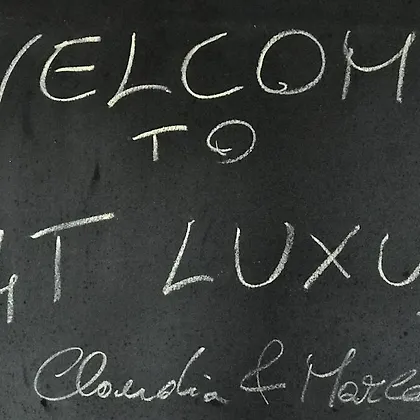 WELCOM
TO
T LUXU
Claudia & Marco